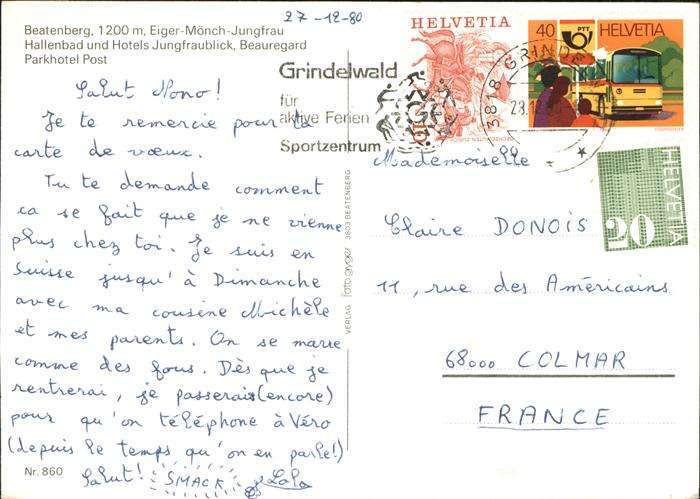 27-12-80
Beatenberg, 1200 m, Eiger-Mönch-Jungfrau
Hallenbad und Hotels Jungfraublick, Beauregard
Parkhotel Post
Salut Nono!
Je te remercie pour ta
carte de vœux.
Tu te demande comment
ca se fait que je ne vienne
plus chez toi. Je suis en
Suisse jusqu'à Dimanche
avec ma cousine Michèle
et mes parents. On se marre
comme des fous. Dès que je
rentrerai, je passerais (encore)
pour qu'on téléphone à Véro
(depuis le temps qu'on en parle!)
Salut! SMACK
Lola
Nr. 860
VERLAG foto gyger 3803 BEATENBERG
Grindelwald
für
aktive Ferien
Sportzentrum
HELVETIA
3818 GRINDE
40 PTT HELVETIA
HELVETIA
20
Mademoiselle
Claire DONOIS
11, rue des Américains
68000 COLMAR
FRANCE